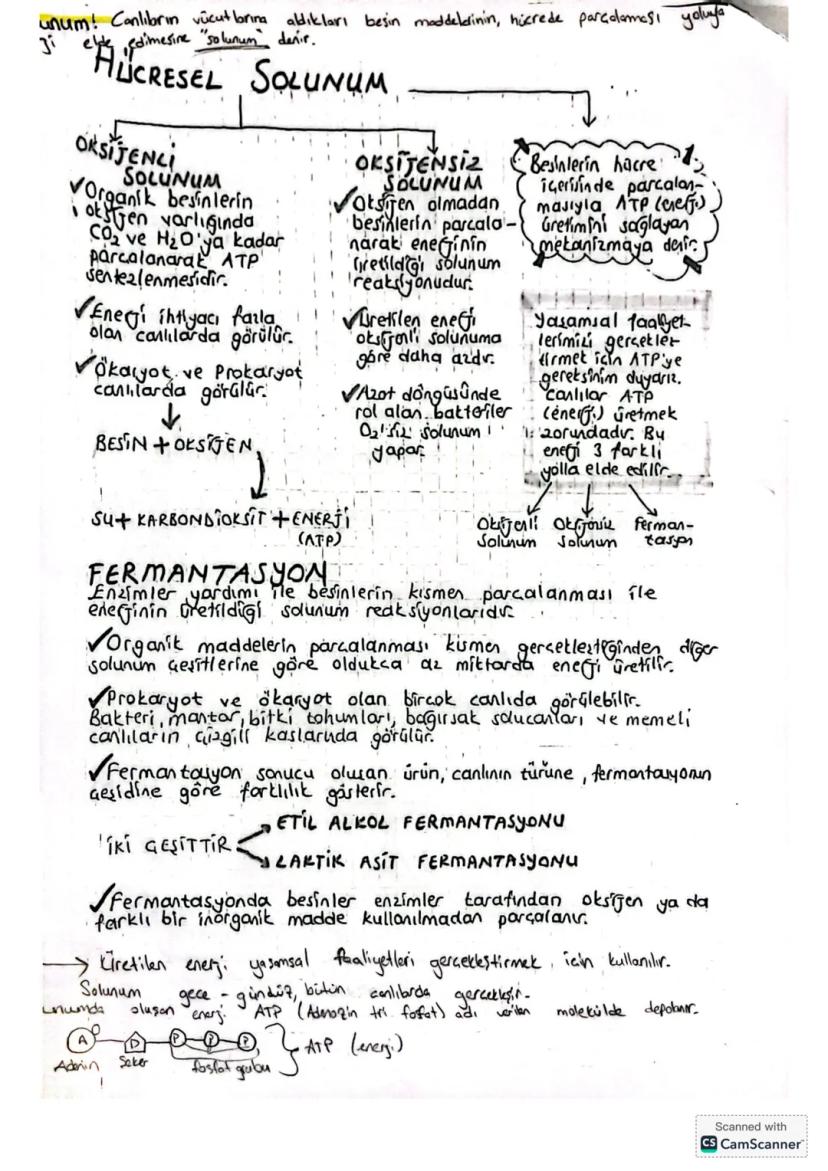 unum! Canlıların vücutlarına aldıkları besin maddelerinin, hücrede parçalaması yoluyla
ji elde edilmesine "solunum" denir.
HÜCRESEL SOLUNUM
OKSİJENLİ
SOLUNUM
✓Organik besinlerin
oksijen varlığında
CO2 ve H2O'ya kadar
parçalanarak ATP
sentezlenmesidir.
✓Enerji ihtiyacı fazla
olan canlılarda görülür.
✓Ökaryot ve Prokaryot
canlılarda görülür.
BESİN + OKSİJEN
SU + KARBONDİOKSİT + ENERJİ
(ATP)
OKSİJENSİZ
SOLUNUM
✓Oksijen olmadan
besinlerin parçala-
narak enerjinin
üretildiği solunum
reaksiyonudur.
✓Üretilen enerji
oksijenli solunuma
göre daha azdır.
✓Azot döngüsünde
rol alan bakteriler
O2'siz solunum
yapar.
Besinlerin hücre
içerisinde parçalan-
masıyla ATP (enerji)
üretimini sağlayan
mekanizmaya denir.
Yaşamsal faaliyet-
lerimizi gerçekleş-
tirmek için ATP'ye
gereksinim duyarız.
Canlılar ATP
(enerji) üretmek
zorundadır. Bu
enerji 3 farklı
yolla elde edilir.
Oksijenli Oksijensiz Ferman-
Solunum Solunum tasyon
FERMANTASYON
Enzimler yardımı ile besinlerin kısmen parçalanması ile
enerjinin üretildiği solunum reaksiyonlarıdır.
✓Organik maddelerin parçalanması kısmen gerçekleştiğinden diğer
solunum çeşitlerine göre oldukça az miktarda enerji üretilir.
✓Prokaryot ve ökaryot olan birçok canlıda görülebilir.
Bakteri, mantar, bitki tohumları, bağırsak solucanları ve memeli
canlıların çizgili kaslarında görülür.
✓Fermantasyon sonucu oluşan ürün, canlının türüne, fermantasyonun
çeşidine göre farklılık gösterir.
İKİ ÇEŞİTTİR
ETİL ALKOL FERMANTASYONU
LAKTİK ASİT FERMANTASYONU
✓Fermantasyonda besinler enzimler tarafından oksijen ya da
farklı bir inorganik madde kullanılmadan parçalanır.
→ Üretilen enerji yaşamsal faaliyetleri gerçekleştirmek için kullanılır.
Solunum gece - gündüz, bütün canlılarda gerçekleşir.
unumda oluşan enerji ATP (Adenozin tri fosfat) adı verilen molekülde depolanır.
A D P P P ATP (enerji)
Adenin Şeker fosfat grubu
Scanned with
CS CamScanner